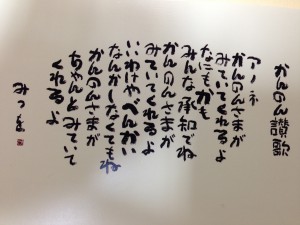 かんのん讃歌
アノネ
かんのんさまが
みていてくれるよ
なにもかも
みんな承知でね
かんのんさまが
みていてくれるよ
いいわけやべんかい
なんかしなくてもね
かんのんさまが
ちゃんとみていて
くれるよ
みつを